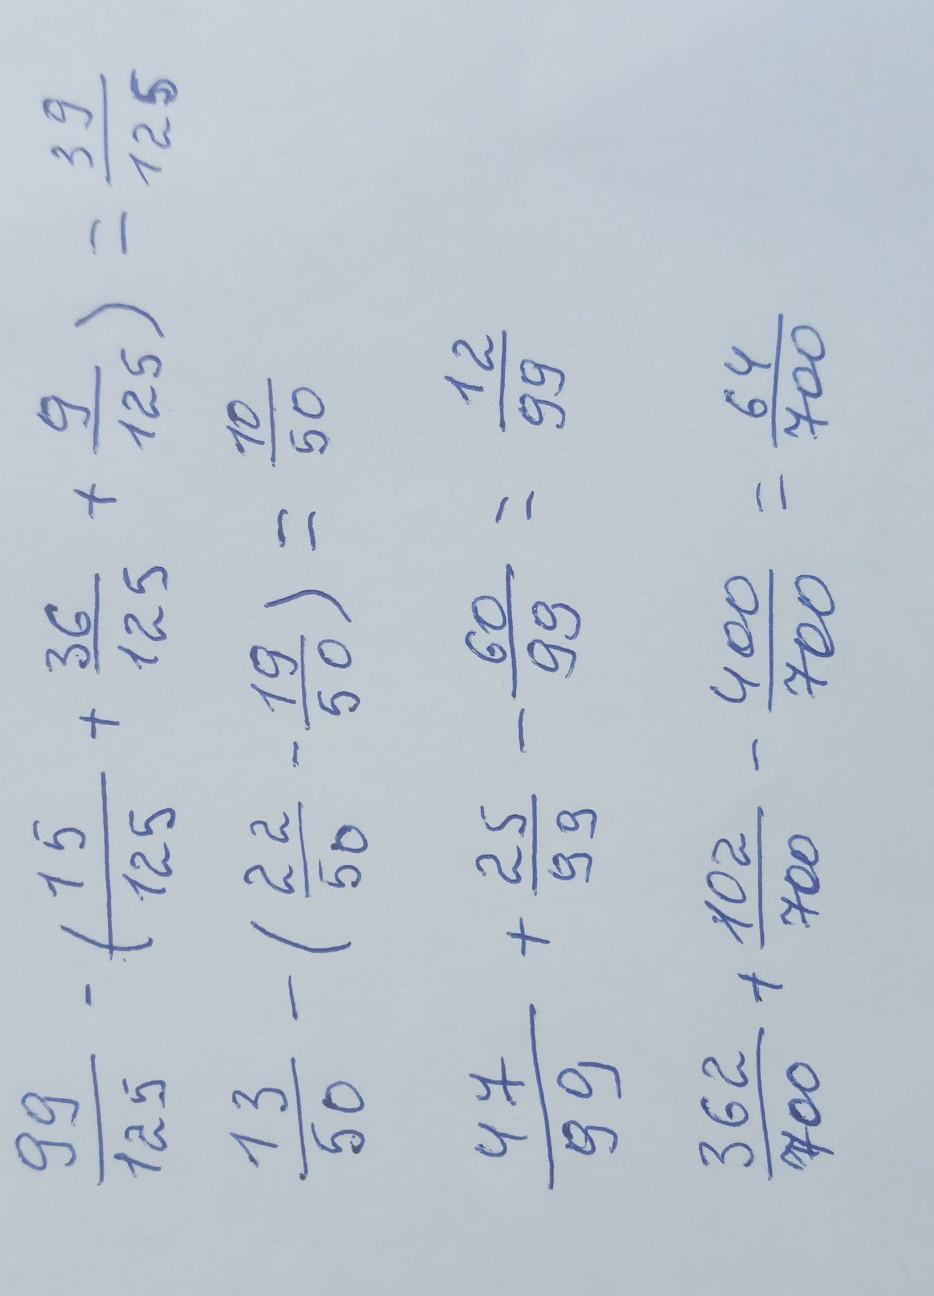 99/125 - (15/125 + 36/125 + 9/125) = 39/125
13/50 - (22/50 - 19/50) = 10/50
47/99 + 25/99 - 60/99 = 12/99
362/700 + 102/700 - 400/700 = 64/700